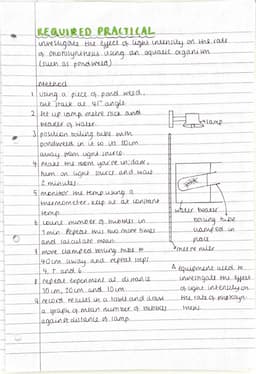 REQUIRED PRACTICAL
investigate the effect of light intensity on the rate
of photosynthesis using an aquatic organism
(such as pondweed)
Method
1 Using a piece of pond weed,
cut stalk at 45° angle
2 Set up lamp, metre rule and
beaker of water.
3 position boiling tube with
pondweed in it so its 10cm
away from light source.
4 make the room you're in dark,
turn on light source and wait
2 minutes.
5 monitor the temp using a
thermometer. keep us at constant
temp
6 count number of bubbles in
1 min. Repeat this two more times
and calculate mean.
7 move clamped boiling tube to
40cm away and repeat steps
4, 5 and 6
8 repeat experiment at distance
30cm, 20cm and 10cm.
9 record results in a table and draw
a graph of mean number of bubbles
against distance of lamp.
lamp
water beaker
boiling tube
clamped in
place
metre ruler
Equipment used to
investigate the effect
of light intensity on
the rate of photosyn